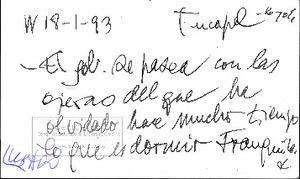 W 18-1-93 Tucapel
- El gob. se pasea con las
ojeras del que ha
olvidado hace mucho tiempo
lo que es dormir tranquilo.
USADO